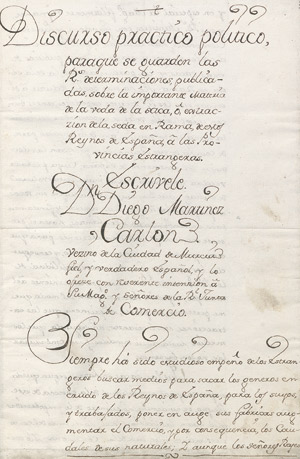 Discurso practico politico,
paraque se guarden las
Rs. determinaciones, publica-
das, sobre la importante Materia
de la veda de la saca, ô extrac-
zion de la seda en Rama, de estos
Reynos de España, â las Pro-
vincias Estrangeras.
Escrivele.
Dn. Diego Martinez
Carlon
Vezino de la Ciudad de Murcia
fiel, y verdadero Español, y lo
ofreze con reverente intencion â
Su Magd. y Señores de la Rl. Junta
de Comercio.
Siempre há sido estudioso empeño de los Estran-
geros buscar medios para sacar los generos en
crudo de los Reynos de España, para los suyos,
y trabajados, poner en auge sus fabricas aug-
mentar el Comercio, y por consequencia, los Cau-
dales de sus naturales; Y aunque los Señores Reyes